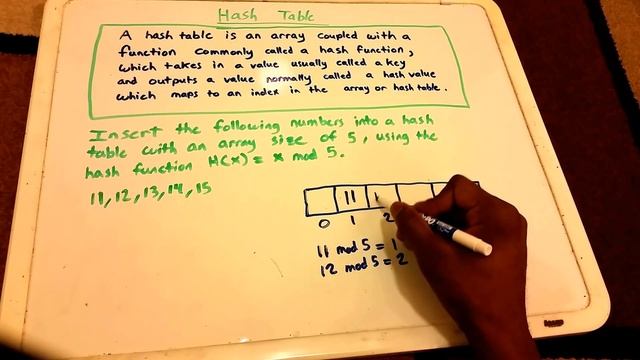 Hash Table
A hash table is an array coupled with a
function commonly called a hash function,
which takes in a value usually called a key
and outputs a value normally called a hash value
which maps to an index in the array or hash table.
Insert the following numbers into a hash
table with an array size of 5, using the
hash function H(x) = x mod 5.
11, 12, 13, 14, 15
11
0 1 2
11 mod 5 = 1
12 mod 5 = 2